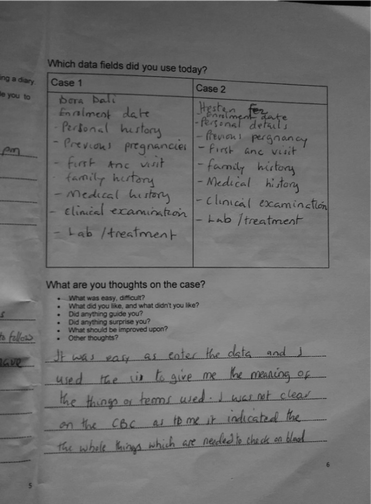 ng a diary
e you to
pm
s
to follow
5
Which data fields did you use today?
Case 1
Dora Dali
Enrolment date
- Personal history
- Previous pregnancies
- First Anc visit
family history
- Medical history
- Clinical examination
- Lab / treatment
Case 2
Enrolment date
- Personal details
- Previous pergnancy
- First anc visit
- family history
- Medical history
- Clinical examination
- Lab / treatment
What are you thoughts on the case?
• What was easy, difficult?
• What did you like, and what didn't you like?
• Did anything guide you?
• Did anything surprise you?
• What should be improved upon?
• Other thoughts?
It was easy as enter the data and I
used the to give me the meaning of
the things or terms used. I was not clear
on the CBC as to me it indicated the
the whole things which are needed to check on blood
6